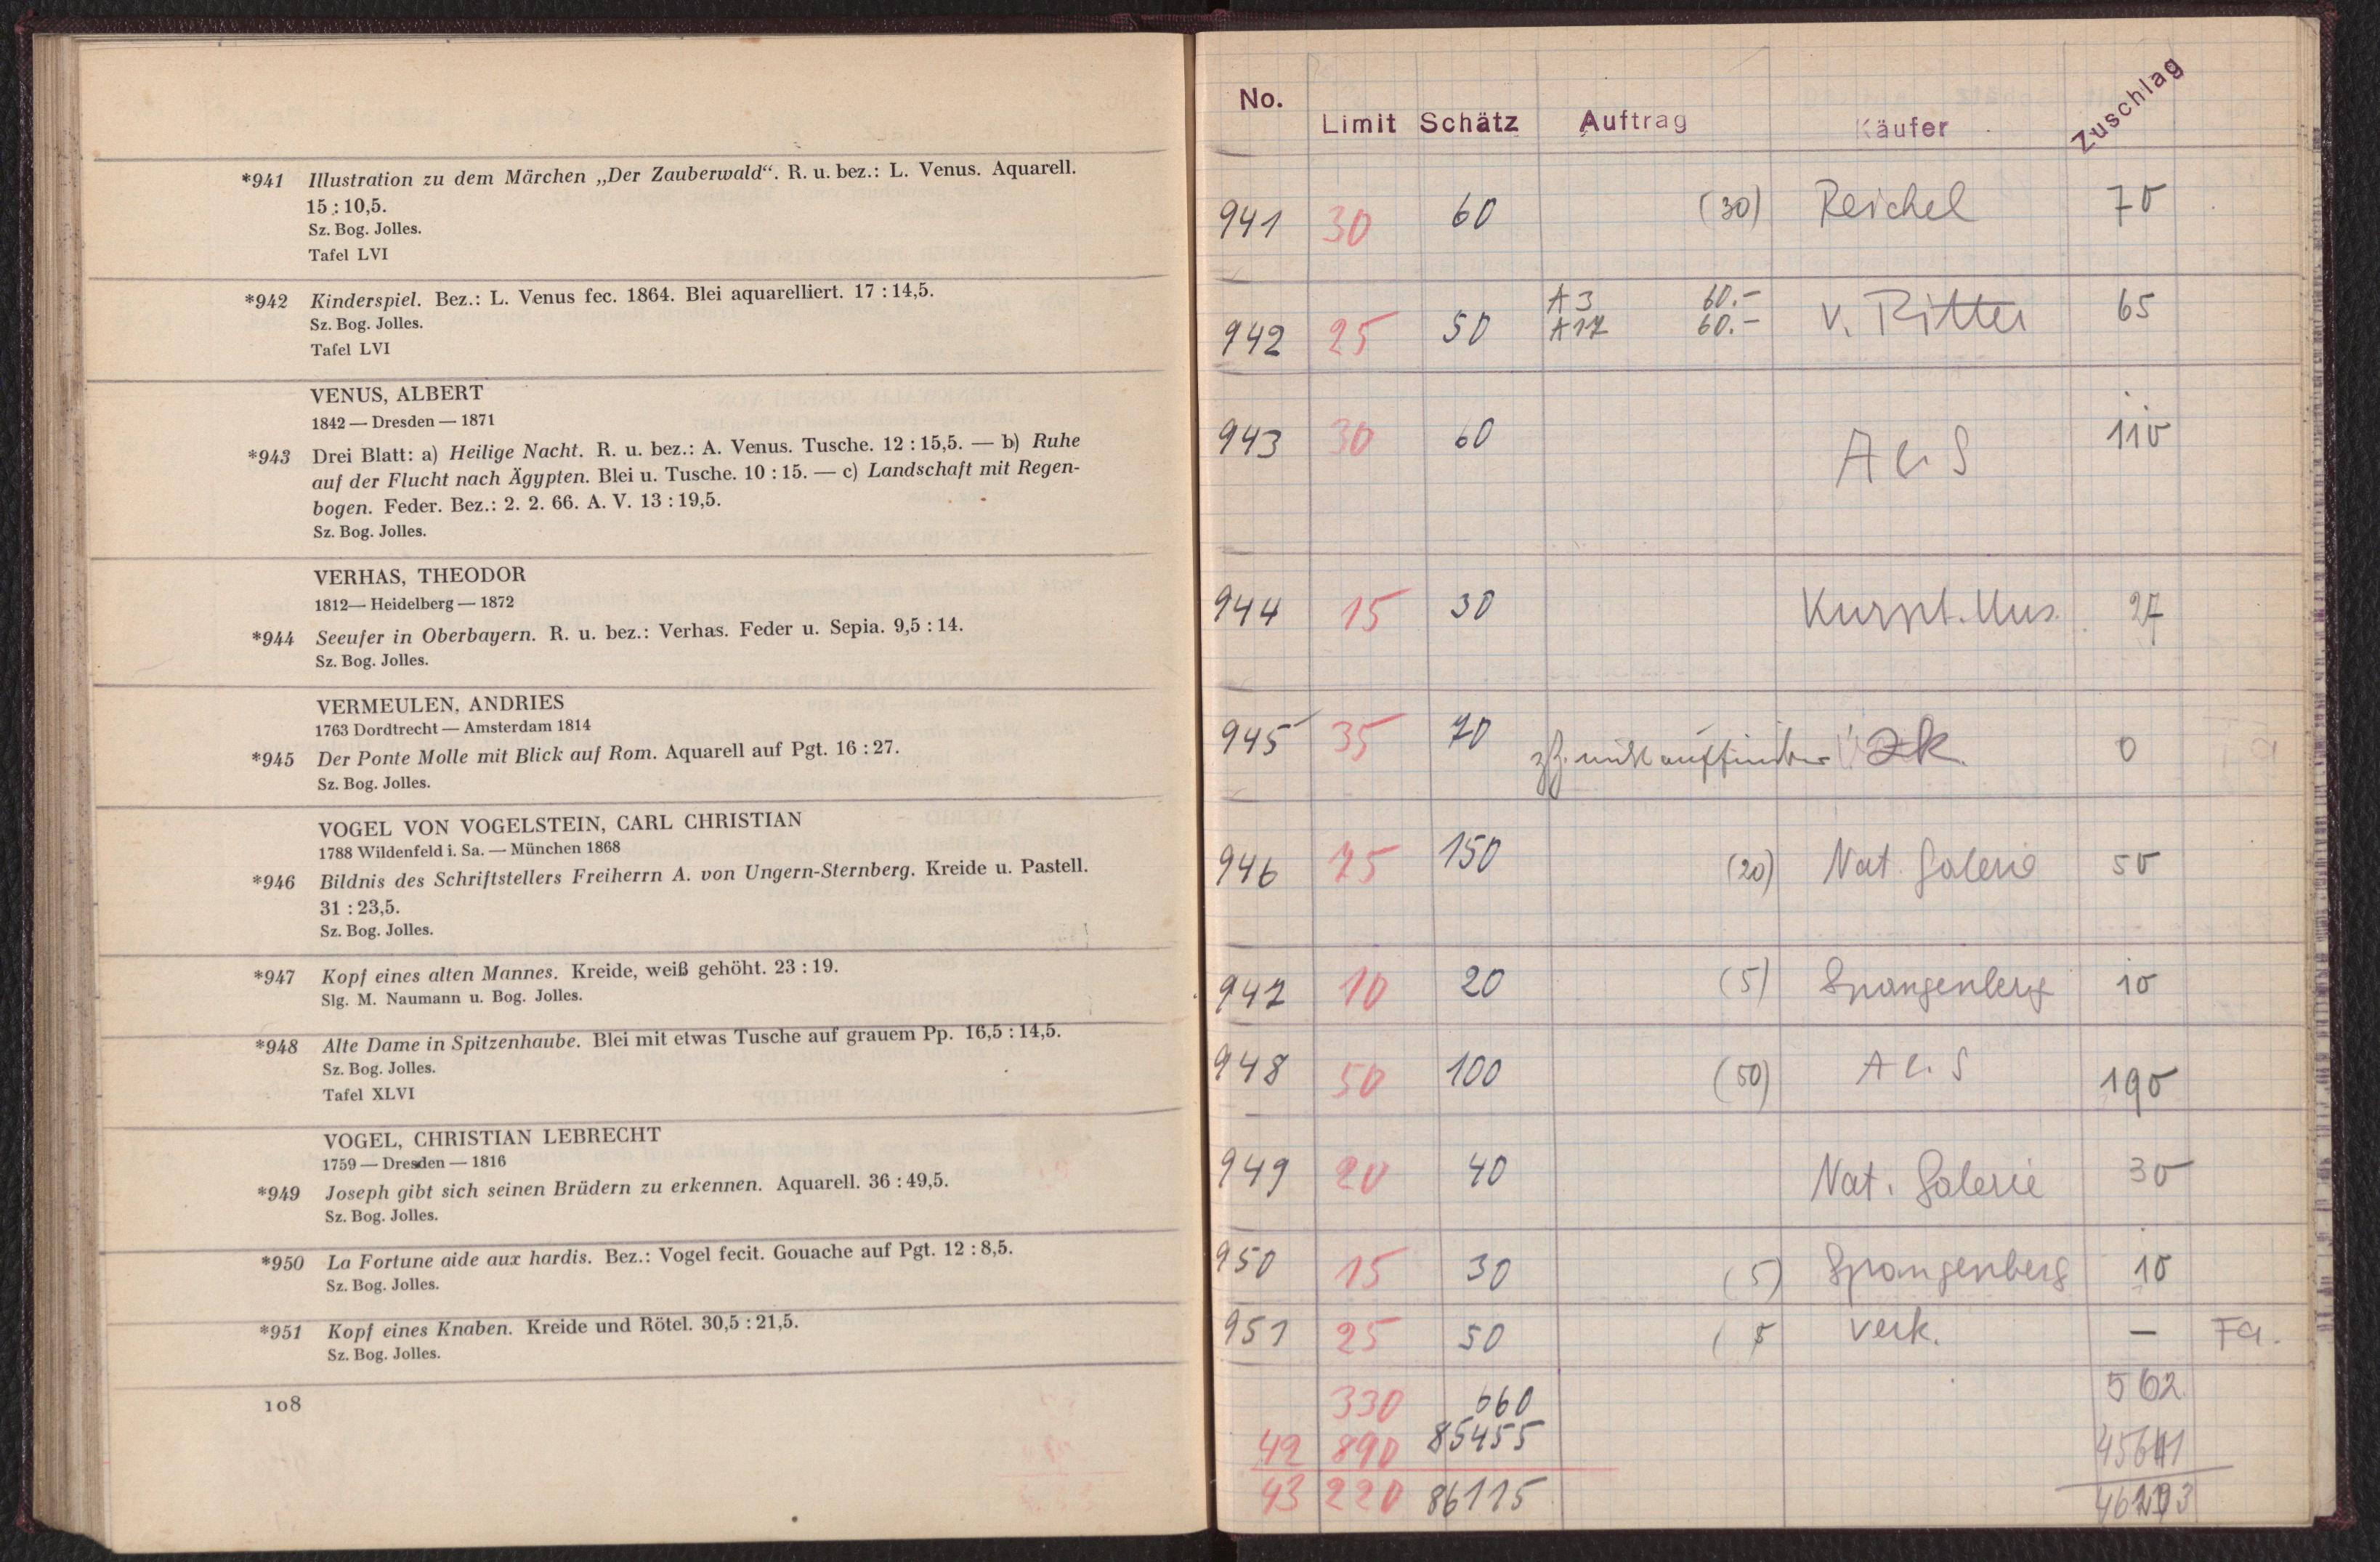 *941 Illustration zu dem Märchen „Der Zauberwald“. R. u. bez.: L. Venus. Aquarell.
15 : 10,5.
Sz. Bog. Jolles.
Tafel LVI
*942 Kinderspiel. Bez.: L. Venus fec. 1864. Blei aquarelliert. 17 : 14,5.
Sz. Bog. Jolles.
Tafel LVI
VENUS, ALBERT
1842 — Dresden — 1871
*943 Drei Blatt: a) Heilige Nacht. R. u. bez.: A. Venus. Tusche. 12 : 15,5. — b) Ruhe
auf der Flucht nach Ägypten. Blei u. Tusche. 10 : 15. — c) Landschaft mit Regen-
bogen. Feder. Bez.: 2. 2. 66. A. V. 13 : 19,5.
Sz. Bog. Jolles.
VERHAS, THEODOR
1812— Heidelberg — 1872
*944 Seeufer in Oberbayern. R. u. bez.: Verhas. Feder u. Sepia. 9,5 : 14.
Sz. Bog. Jolles.
VERMEULEN, ANDRIES
1763 Dordtrecht — Amsterdam 1814
*945 Der Ponte Molle mit Blick auf Rom. Aquarell auf Pgt. 16 : 27.
Sz. Bog. Jolles.
VOGEL VON VOGELSTEIN, CARL CHRISTIAN
1788 Wildenfeld i. Sa. — München 1868
*946 Bildnis des Schriftstellers Freiherrn A. von Ungern-Sternberg. Kreide u. Pastell.
31 : 23,5.
Sz. Bog. Jolles.
*947 Kopf eines alten Mannes. Kreide, weiß gehöht. 23 : 19.
Slg. M. Naumann u. Bog. Jolles.
*948 Alte Dame in Spitzenhaube. Blei mit etwas Tusche auf grauem Pp. 16,5 : 14,5.
Sz. Bog. Jolles.
Tafel XLVI
VOGEL, CHRISTIAN LEBRECHT
1759 — Dresden — 1816
*949 Joseph gibt sich seinen Brüdern zu erkennen. Aquarell. 36 : 49,5.
Sz. Bog. Jolles.
*950 La Fortune aide aux hardis. Bez.: Vogel fecit. Gouache auf Pgt. 12 : 8,5.
Sz. Bog. Jolles.
*951 Kopf eines Knaben. Kreide und Rötel. 30,5 : 21,5.
Sz. Bog. Jolles.
108
No. Limit Schätz Auftrag Käufer Zuschlag
941 30 60 (30) Reichel 70
942 25 50 A 3 60.– v. Ritter 65
A 17 60.–
943 30 60 110
944 15 30 Kurpf. Mus. 27
945 35 70 zk. 0
946 75 150 (20) Nat. Galerie 50
947 10 20 (5) Spangenberg 10
948 50 100 (50) 190
949 20 40 Nat. Galerie 30
950 15 30 (5) Spangenberg 10
951 25 50 ( 5 verk. — Fa.
330 660 562
42 890 85455
43 220 86115